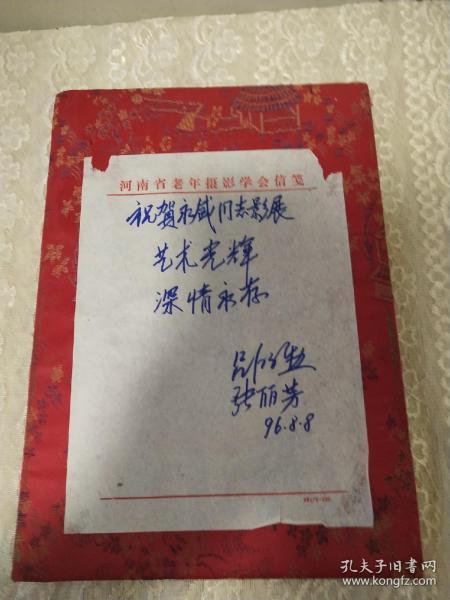 河南省老年摄影学会信笺
祝贺永诚同志影展
艺术光辉
深情永存
张丽芳
96.8.8
孔夫子旧书网
www.kongfz.com